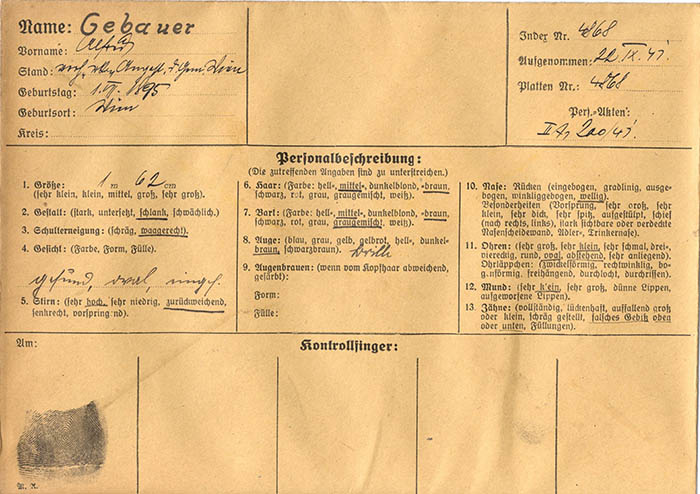 Name: Gebauer
Vorname: Alfred
Stand: Angest. d. Gem. Wien
Geburtstag: 1895
Geburtsort: Wien
Kreis:
Index Nr. 4868
Aufgenommen: 22. IX. 41
Platten Nr.: 4868
Pers.-Akten:
200/41
Personalbeschreibung:
(Die zutreffenden Angaben sind zu unterstreichen.)
1. Größe: 1 m 62 cm
(sehr klein, klein, mittel, groß, sehr groß).
2. Gestalt: (stark, untersetzt, schlank, schwächlich).
3. Schulterneigung: (schräg, waagerecht).
4. Gesicht: (Farbe, Form, Fülle).
gesund, oval, eingef.
5. Stirn: (sehr hoch, sehr niedrig, zurückweichend,
senkrecht, vorspringend).
6. Haar: (Farbe: hell-, mittel-, dunkelblond, -braun,
schwarz, rot, grau, graugemischt, weiß).
7. Bart: (Farbe: hell-, mittel-, dunkelblond, -braun,
schwarz, rot, grau, graugemischt, weiß).
8. Auge: (blau, grau, gelb, gelbrot, hell-, dunkel-
braun, schwarzbraun). Brille
9. Augenbrauen: (wenn vom Kopfhaar abweichend,
gefärbt):
Form:
Fülle:
10. Nase: Rücken (eingebogen, gradlinig, ausge-
bogen, winkliggebogen, wellig).
Besonderheiten (Vorsprung, sehr groß, sehr
klein, sehr dick, sehr spitz, aufgestülpt, schief
(nach rechts, links), stark sichtbare oder verdeckte
Nasenscheidewand, Adler-, Trinkernase).
11. Ohren: (sehr groß, sehr klein, sehr schmal, drei-,
viereckig, rund, oval, abstehend, sehr anliegend).
Ohrläppchen: (zwickelförmig, rechtwinklig, bo-
genförmig, freihängend, durchlocht, durchrissen).
12. Mund: (sehr klein, sehr groß, dünne Lippen,
aufgeworfene Lippen).
13. Zähne: (vollständig, lückenhaft, auffallend groß
oder klein, schräg gestellt, falsches Gebiß oben
oder unten, Füllungen).
Am:
Kontrollfinger: